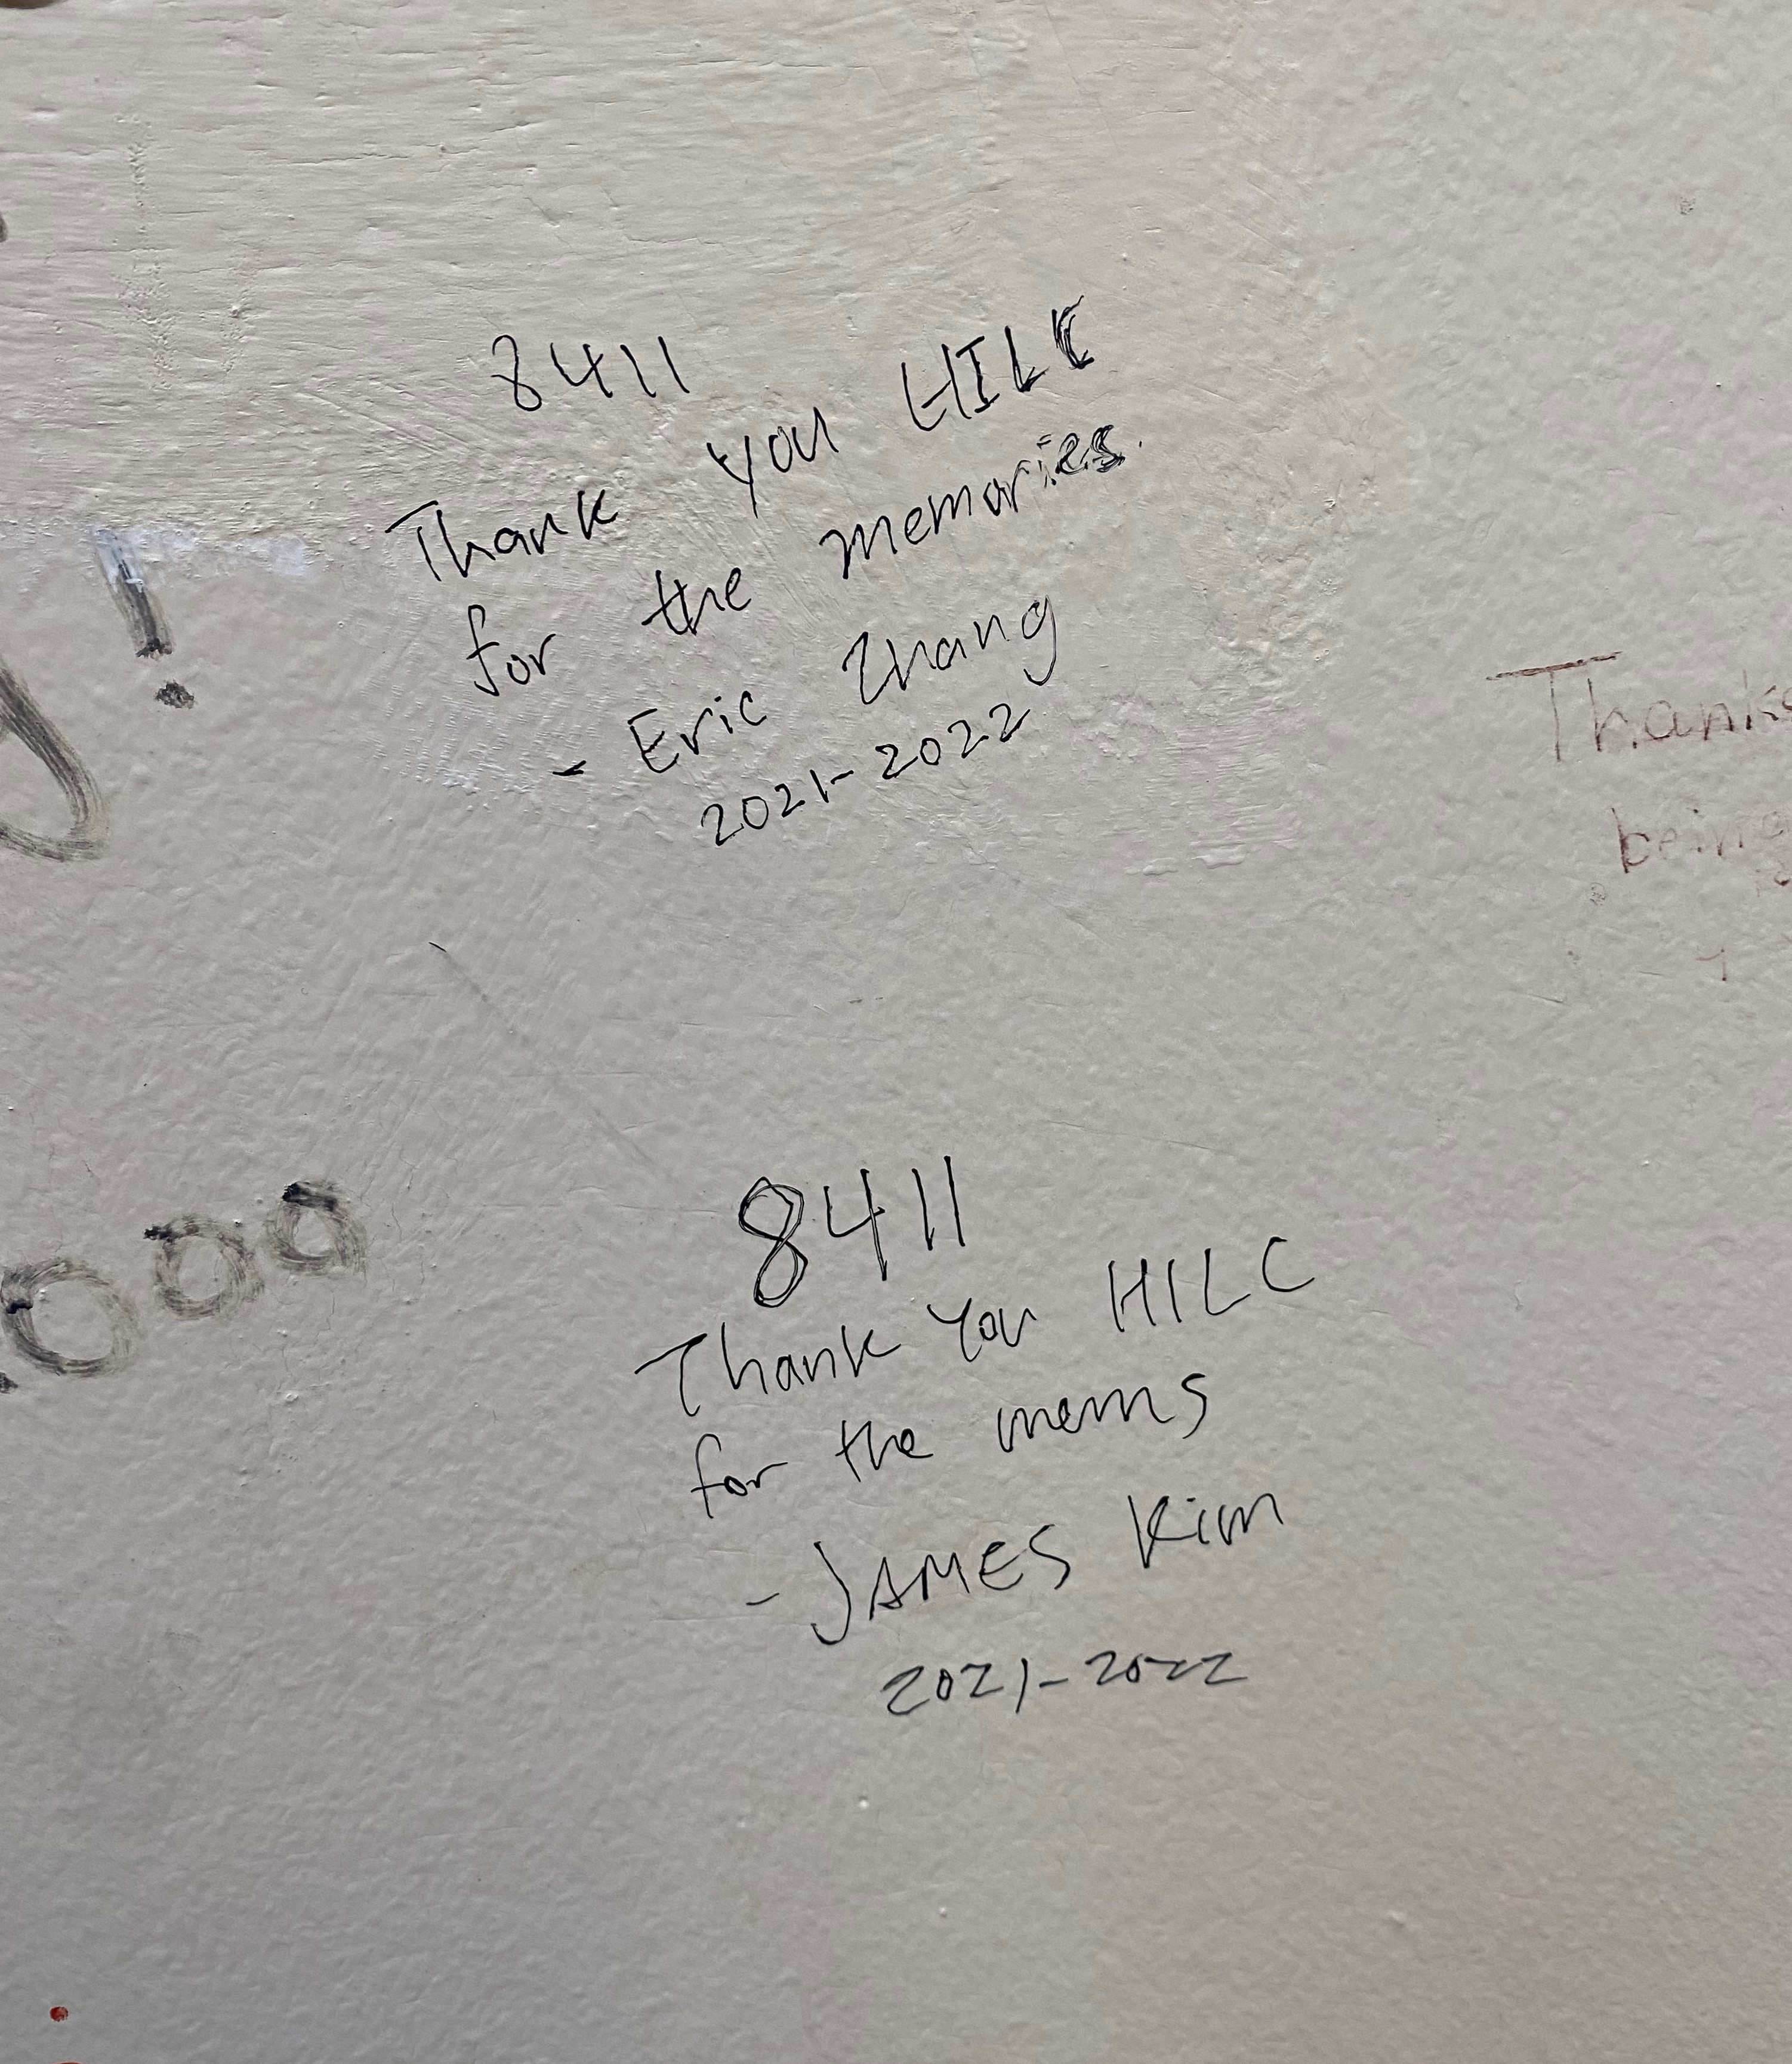 8411
Thank you HILC
for the memories.
- Eric Zhang
2021-2022
!
Thank
being
ooo
8411
Thank You HILC
for the mems
- JAMES Kim
2021-2022